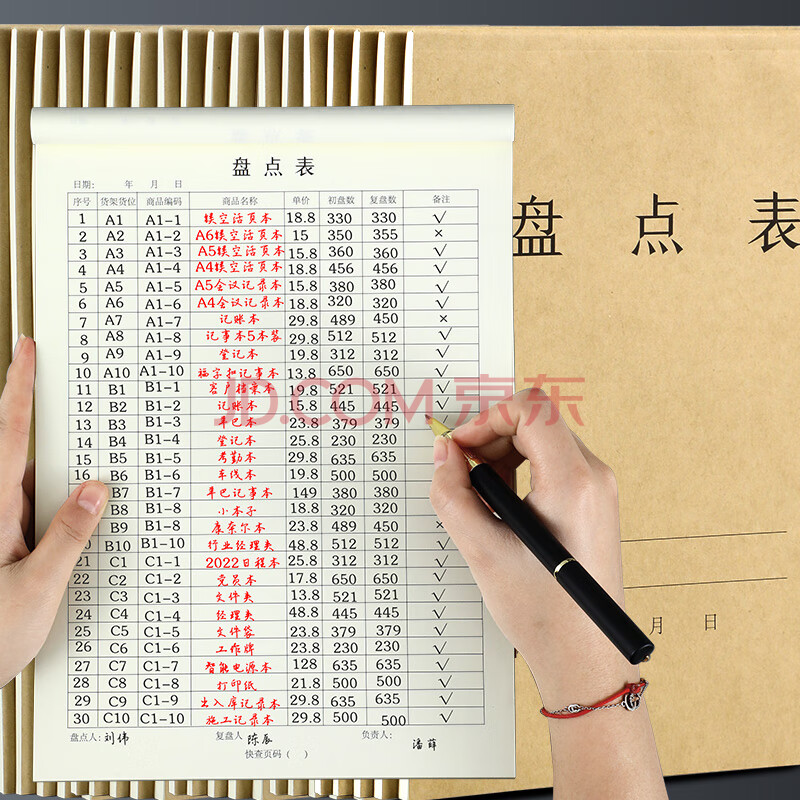 盘点表
日期: 年 月 日
序号 货架货位 商品编码 商品名称 单价 初盘数 复盘数 备注
1 A1 A1-1 镂空活页本 18.8 330 330 √
2 A2 A1-2 A6镂空活页本 15 350 355 ×
3 A3 A1-3 A5镂空活页本 15.8 360 360 √
4 A4 A1-4 A4镂空活页本 18.8 456 456 √
5 A5 A1-5 A5会议记录本 15.8 380 380 √
6 A6 A1-6 A4会议记录本 18.8 320 320 √
7 A7 A1-7 记账本 29.8 489 450 ×
8 A8 A1-8 记事本5本装 29.8 512 512 √
9 A9 A1-9 登记本 19.8 312 312 √
10 A10 A1-10 福字扣记事本 13.8 650 650 √
11 B1 B1-1 客户档案本 19.8 521 521 √
12 B2 B1-2 记账本 15.8 445 445 √
13 B3 B1-3 羊巴本 23.8 379 379 √
14 B4 B1-4 登记本 25.8 230 230
15 B5 B1-5 考勤本 29.8 635 635
16 B6 B1-6 车线本 19.8 500 500
B7 B1-7 羊巴记事本 149 380 380
B8 B1-8 小本子 18.8 320 320
B9 B1-8 康奈尔本 23.8 489 450 ×
0 B10 B1-10 行业经理夹 48.8 512 512 √
21 C1 C1-1 2022日程本 25.8 312 312 √
22 C2 C1-2 党员本 17.8 650 650 √
23 C3 C1-3 文件夹 13.8 521 521 √
24 C4 C1-4 经理夹 48.8 445 445 √
25 C5 C1-5 文件袋 23.8 379 379 √
26 C6 C1-6 工作牌 23.8 230 230 √
27 C7 C1-7 智能电源本 128 635 635 √
28 C8 C1-8 打印纸 21.8 500 500 √
29 C9 C1-9 出入库记录本 29.8 635 635 √
30 C10 C1-10 施工记录本 29.8 500 500 √
盘点人: 刘伟 复盘人 陈辰 负责人: 潘薛
快查页码 ( )
盘点表
月 日
JD.COM京东